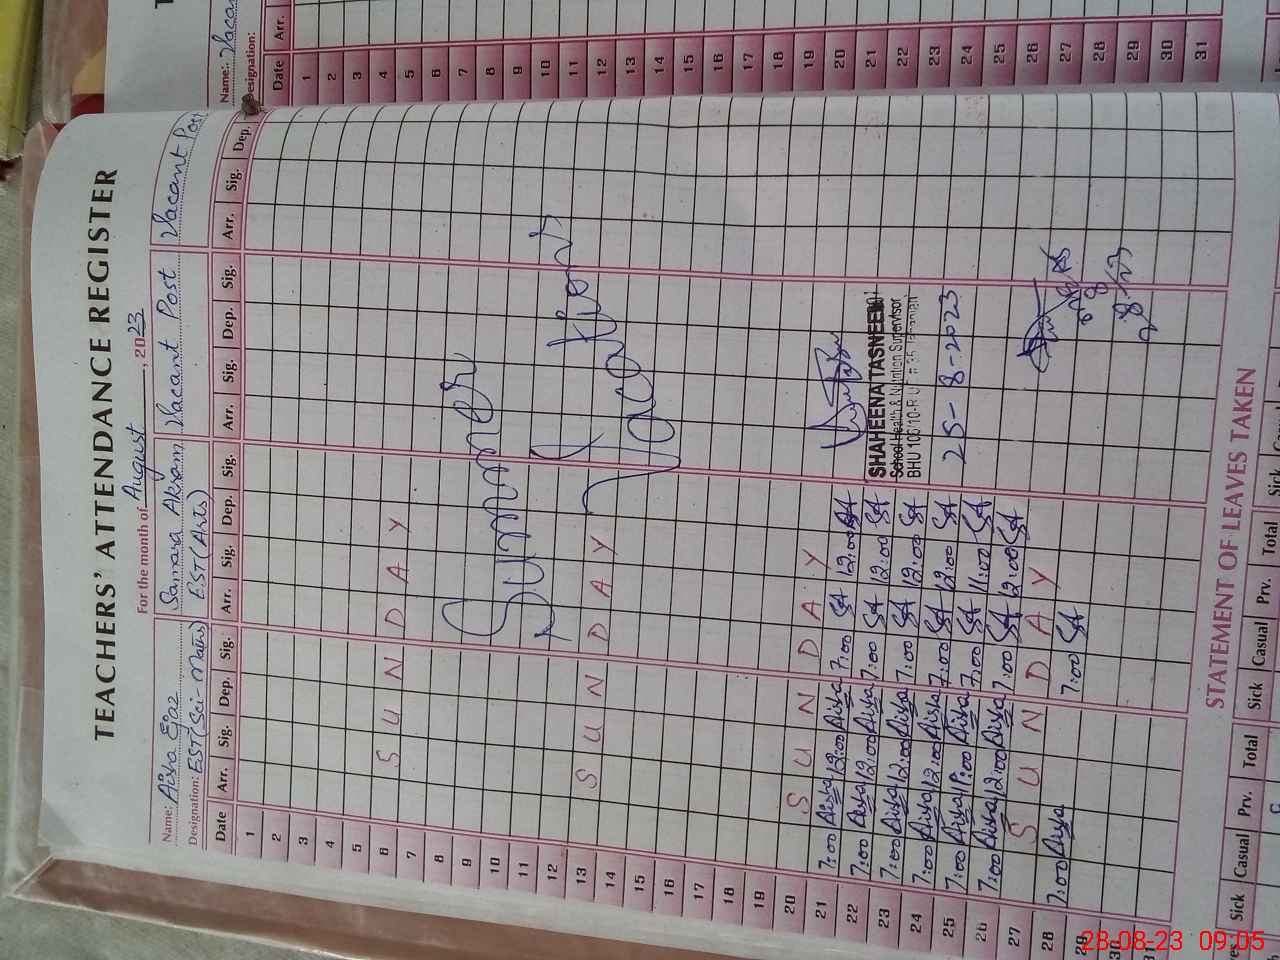 TEACHERS' ATTENDANCE REGISTER
For the month of August, 2023
Name: Aisha Ejaz Samara Akram Vacant Post Vacant Post
Designation: EST(Sci-Maths) EST(Arts)
Date Arr. Sig. Dep. Sig. Arr. Sig. Dep. Sig. Arr. Sig. Dep. Sig. Arr. Sig. Dep.
1
2
3
4
5
6 S U N D A Y
7
8
9
10
11
12
13 S U N D A Y
14
15
16
17
18
19
20 S U N D A Y
21 7:00 Aisha 12:00 Aisha 7:00 SA 12:00 SA
22 7:00 Aisha 12:00 Aisha 7:00 SA 12:00 SA
23 7:00 Aisha 12:00 Aisha 7:00 SA 12:00 SA
24 7:00 Aisha 12:00 Aisha 7:00 SA 12:00 SA
25 7:00 Aisha 11:00 Aisha 7:00 SA 11:00 SA
26 7:00 Aisha 12:00 Aisha 7:00 SA 12:00 SA
27 S U N D A Y
28 7:00 Aisha 7:00 SA
29
30
31
Summer
Vacations
SHAHEENA TASNEEM
School Health & Nutrition Supervisor
BHU 106/10-R
25-8-2023
STATEMENT OF LEAVES TAKEN
Sick Casual Prv. Total Sick Casual Prv. Total Sick
Name: Vacan
Designation:
Date Arr.
1
2
3
4
5
6
7
8
9
10
11
12
13
14
15
16
17
18
19
20
21
22
23
24
25
26
27
28
29
30
31
28-08-23 09:05